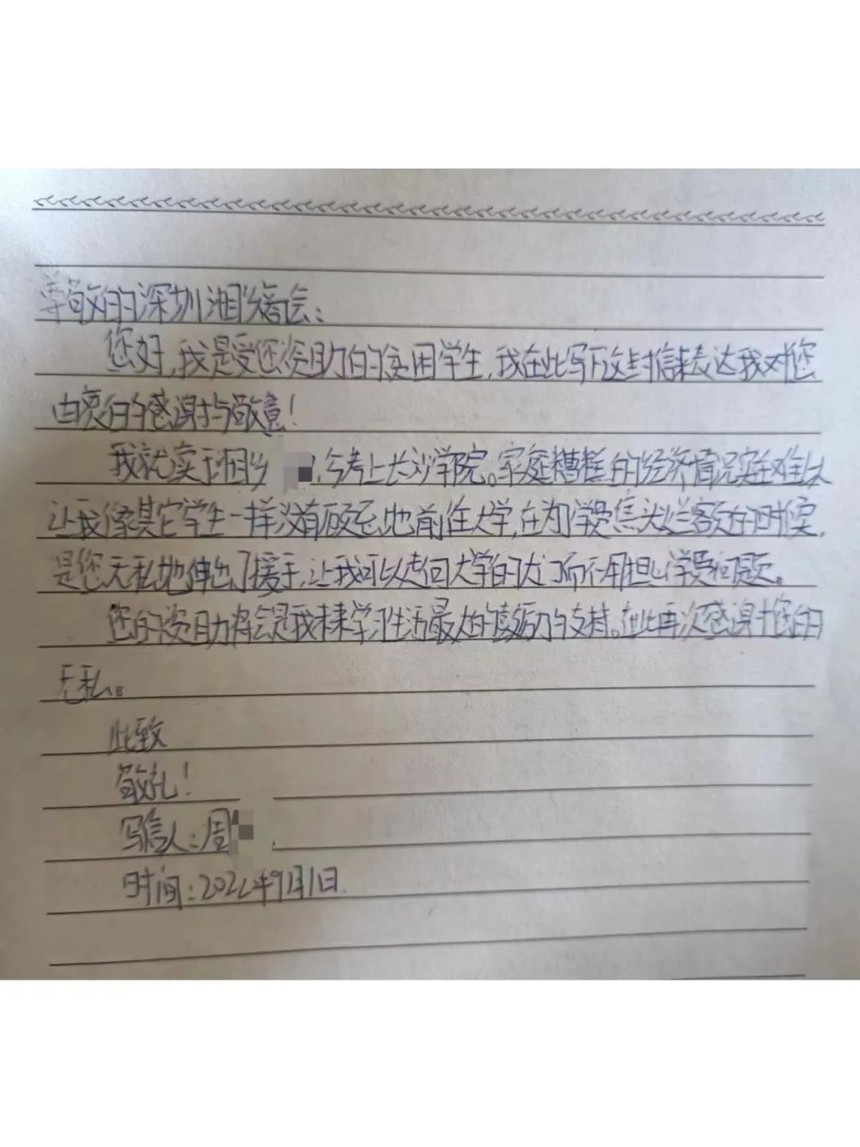 尊敬的深圳湘乡商会：
您好，我是受您资助的贫困学生，我在此写下这封信来表达我对您
由衷的的感谢与敬意！
我就读于湘乡，今考上长沙学院。家庭糟糕的经济情况实在难以
让我像其它学生一样没有顾虑地前往大学，在为学费焦头烂额的时候，
是您无私地伸出了援手，让我可以走向大学的大门而不用担心学费问题。
您的资助将会是我未来学习生活最大的鼓励的支持。在此再次感谢您的
无私。
此致
敬礼！
写信人：周
时间：2022年9月1日.